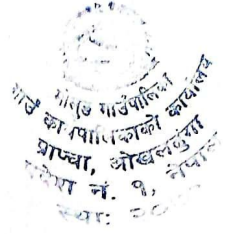 मोलुङ गाउँपालिका
गाउँ कार्यपालिकाको कार्यालय
प्राप्चा, ओखलढुंगा
प्रदेश नं. १, नेपाल
स्था: